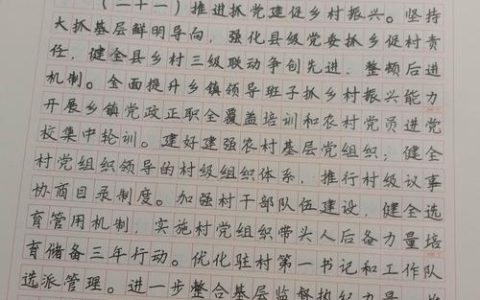 （二十一）推进抓党建促乡村振兴。坚持
大抓基层鲜明导向，强化县级党委抓乡促村责
任，健全县乡村三级联动争创先进、整顿后进
机制。全面提升乡镇领导班子抓乡村振兴能力
开展乡镇党政正职全覆盖培训和农村党员进党
校集中轮训。建好建强农村基层党组织，健全
村党组织领导的村级组织体系，推行村级议事
协商目录制度。加强村干部队伍建设，健全选
育管用机制，实施村党组织带头人后备力量培
育储备三年行动。优化驻村第一书记和工作队
选派管理。进一步整合基层监督执纪力量，